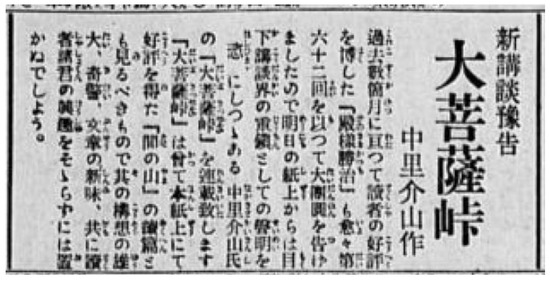 新講談豫告
大菩薩峠
中里介山作
過去數箇月に亘つて讀者の好評
を博した『殿様勝治』も愈々第
六十二回を以つて大團圓を告げ
ましたので明日の紙上からは目
下講談界の重鎭としての聲明を
恣にしつゝある中里介山氏
の『大菩薩峠』を連載致します
『大菩薩峠』は曾て本紙上にて
好評を得た『間の山』の續篇と
も見るべきもので其の構想の雄
大、奇警、文章の新味、共に讀
者諸君の興趣をそゝらずには置
かねでしよう。